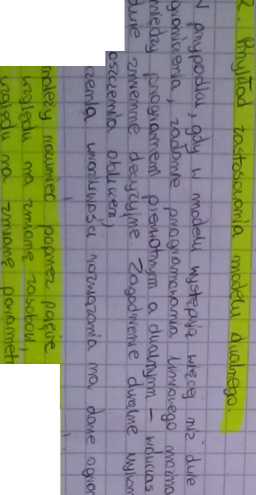 2. Przykład zastosowania modelu dualnego.
W przypadku, gdy w modelu występują więcej niż dwie
graniczenia, zadanie programowania liniowego można
między programem pierwotnym a dualnym – wówczas
dwie zmienne decyzyjne. Zagadnienie dualne
oszczenia obliczeń,
czenia wrażliwości rozwiązania na dane ogran
należy rozumieć poprzez pojęcie
względu na zmianę zasobów,
względu na zmianę paramet